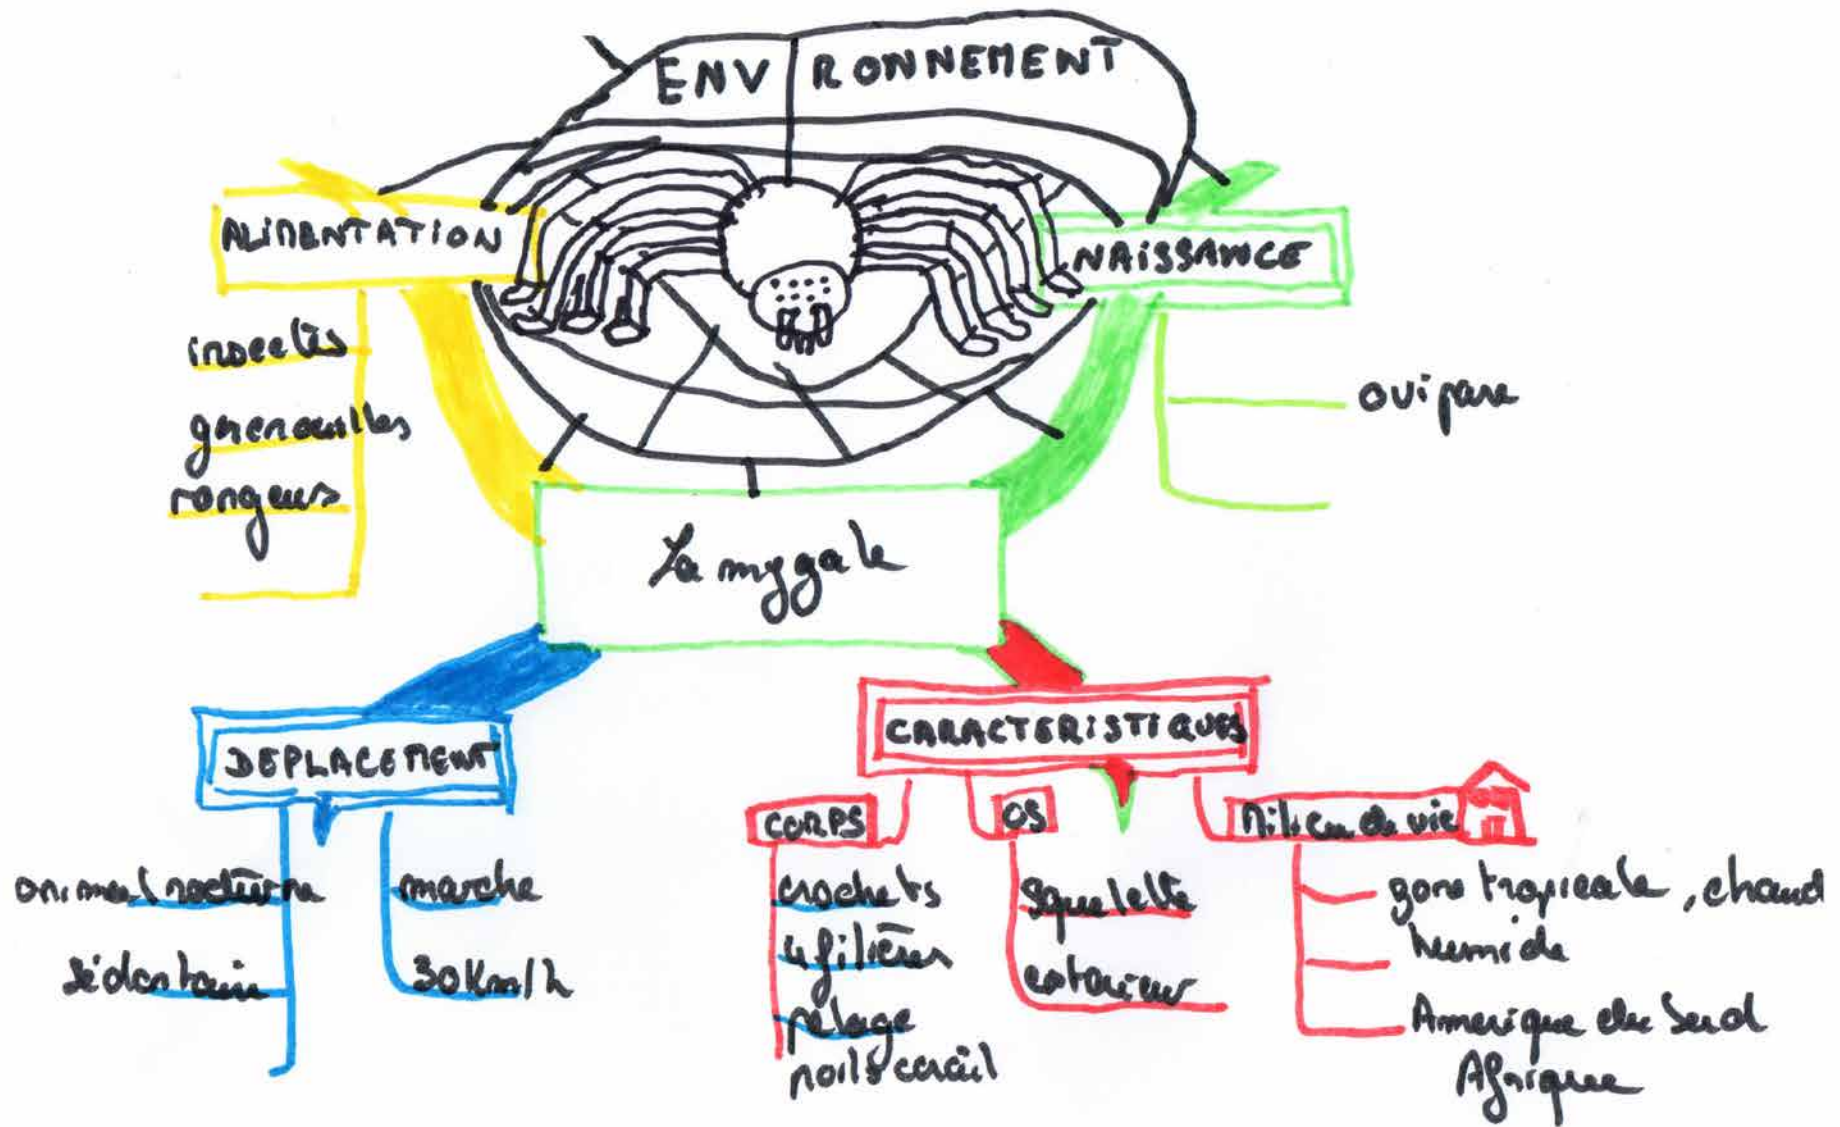 ENVIRONNEMENT
ALIMENTATION
insectes
grenouilles
rongeurs
NAISSANCE
ovipare
La mygale
DEPLACEMENT
animal nocturne
sédentaire
marche
30Km/h
CARACTERISTIQUES
CORPS
crochets
4 filières
pelage
poils
OS
squelette
exterieur
Milieu de vie
zone tropicale, chaud
humide
Amerique du Sud
Afrique